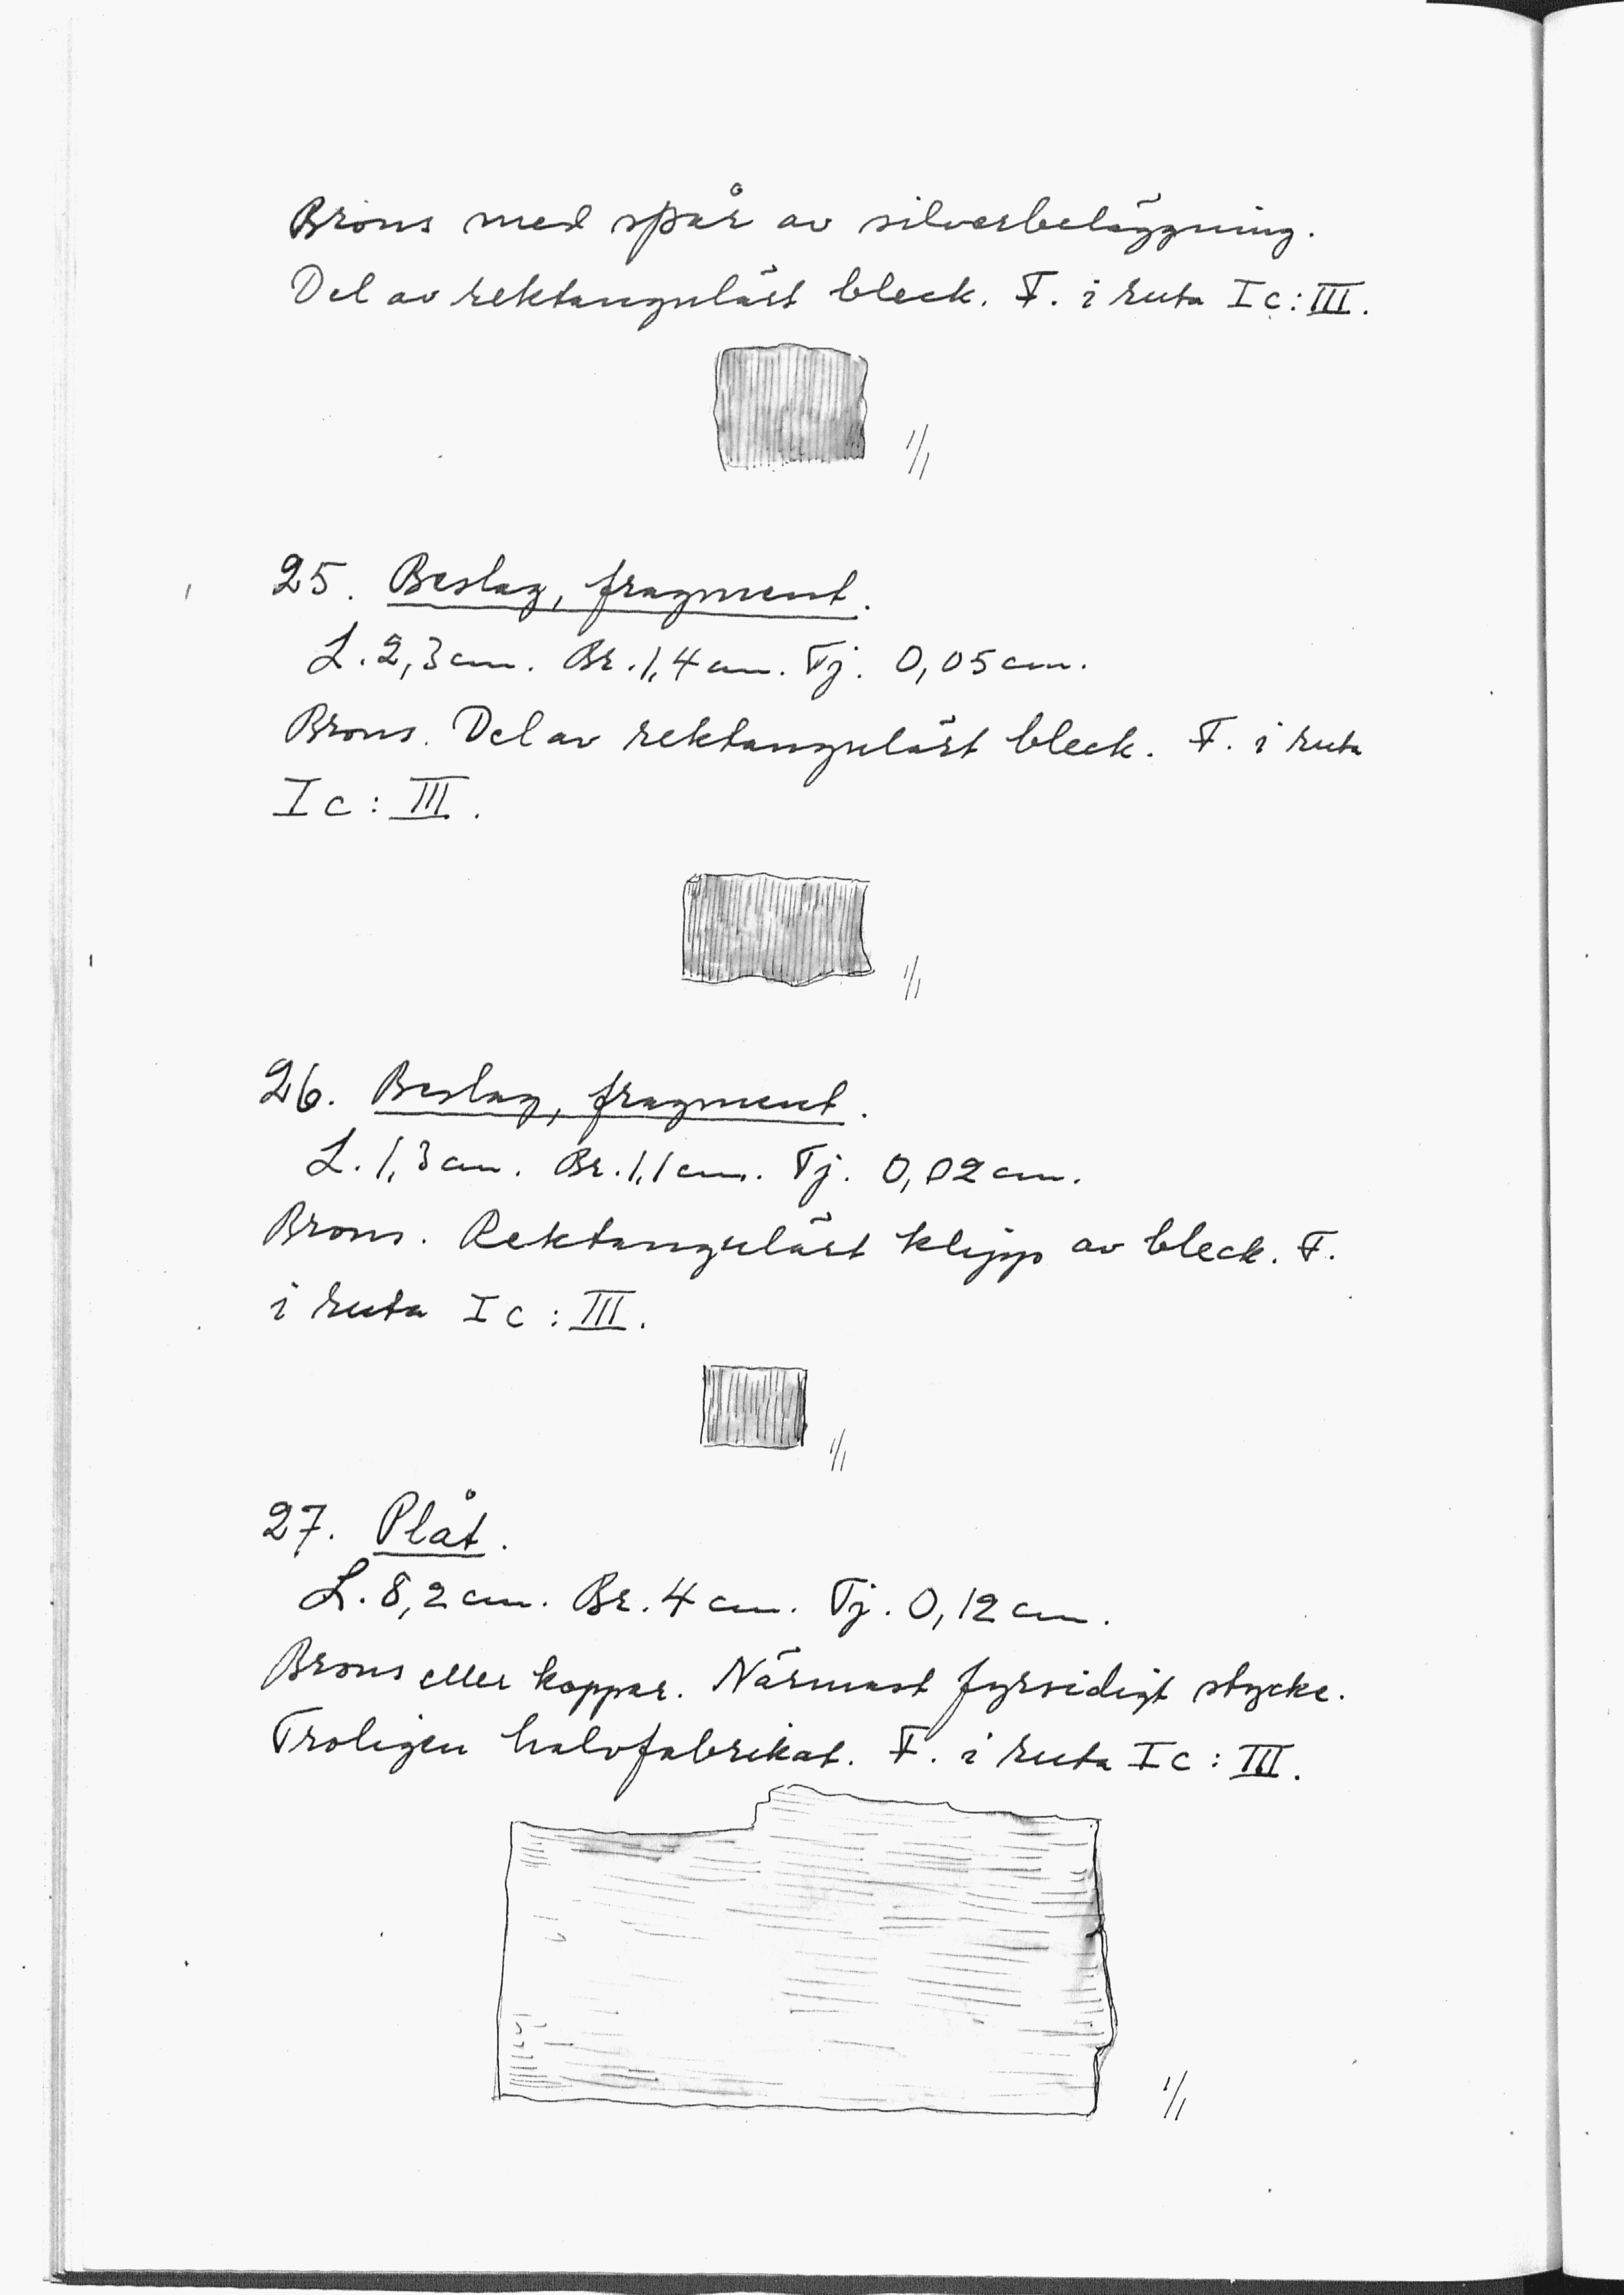 Brons med spår av silverbeläggning.
Del av rektangulärt bleck. F. i ruta Ic:III.
1/1
25. Beslag, fragment.
L. 2,3 cm. Br. 1,4 cm. Tj. 0,05 cm.
Brons. Del av rektangulärt bleck. F. i ruta
Ic: III.
1/1
26. Beslag, fragment.
L. 1,3 cm. Br. 1,1 cm. Tj. 0,02 cm.
Brons. Rektangulärt klipp av bleck. F.
i ruta Ic: III.
1/1
27. Plåt.
L. 8,2 cm. Br. 4 cm. Tj. 0,12 cm.
Brons eller koppar. Närmast fyrsidigt stycke.
Troligen halvfabrikat. F. i ruta Ic: III.
1/1